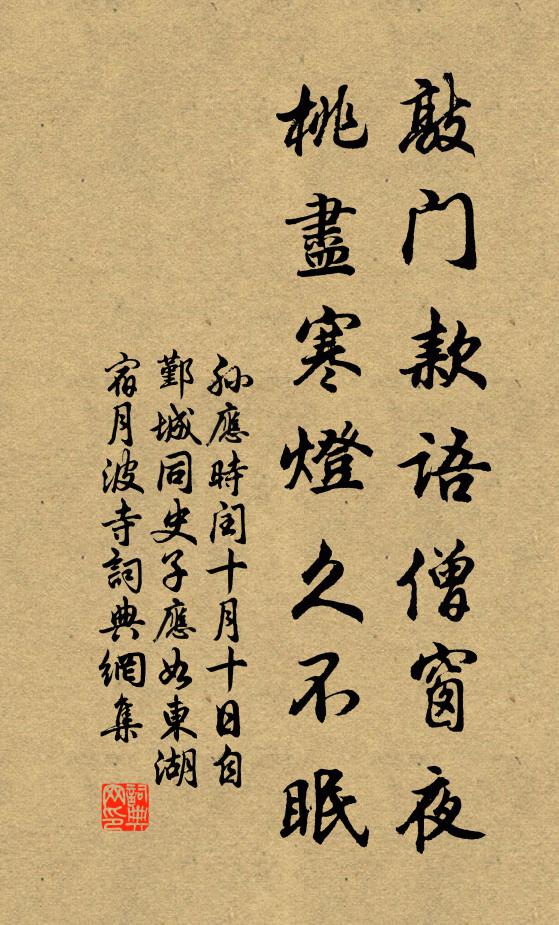 敲门款語僧窗夜
桃盡寒燈久不眠
孫應時闰十月十日自
鄞城同史子應如東湖
宿月波寺詞典網集
詞典網印